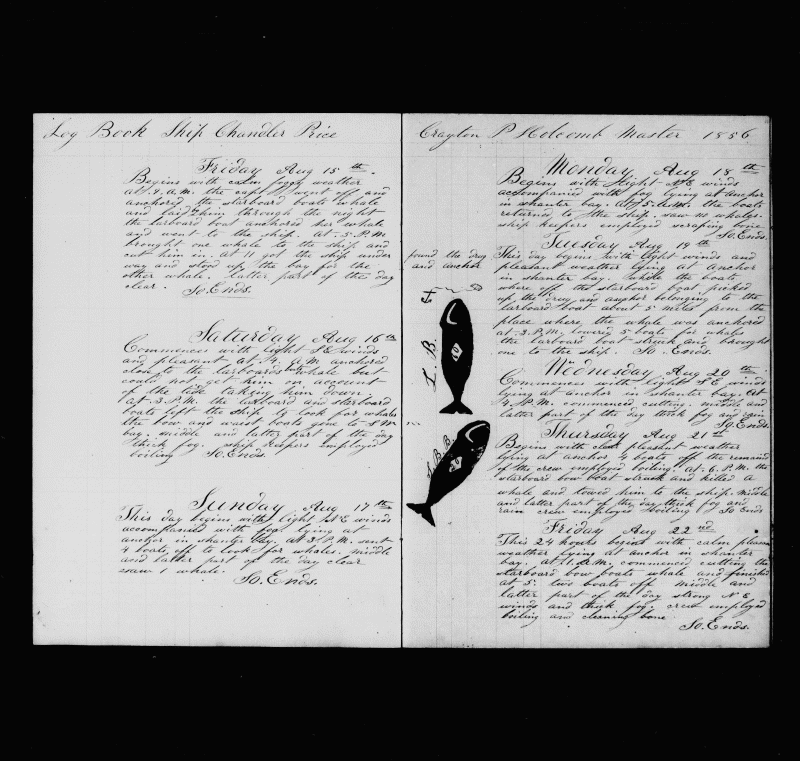 Log Book Ship Chandler Price
Friday Aug 15th.
Begins with calm foggy weather
at 4. A.M. the capt. went off and
anchored the starboard boats whale
and laid by him through the night
the larboard boat anchored her whale
and went to the ship. at. 5. P.M.
brought one whale to the ship and
cut him in. at 11 got the ship under
way and stood up the bay for the
other whale. latter part of the day
clear. So. Ends.
Saturday Aug 16th
Commences with light S.E winds
and pleasant at. 4. A.M anchored
close to the larboards whale but
could not get him on account
of the tide taking him down.
at. 3. P.M. the larboard and starboard
boats left the ship to look for whales
the bow and waist boats gone to S.W
bay. middle and latter part of the day
thick fog. ship keepers employed
boiling So. Ends.
Sunday Aug 17th
This day begins with light N.E winds
accompanied with fog lying at
anchor in shanter bay. at 3 P.M. sent
4 boats off to look for whales. middle
and latter part of the day clear
saw 1 whale.
So. Ends.
Crayton P Holcomb Master 1856
Monday Aug 18th
Begins with light N.E winds
accompanied with fog lying at anchor
in shanter bay. at 5. A.M. the boats
returned to the ship. saw no whales.
ship keepers employed scraping bone
So. Ends.
Tuesday Aug 19th
found the drug
and anchor
This day begins with light winds and
pleasant weather lying at anchor
in shanter bay. while the boats
where off the starboard boat picked
up the drug and anchor belonging to the
larboard boat about 5 miles from the
place where the whale was anchored
at. 3. P.M. lowered 5 boats for whales
the larboard boat struck and brought
one to the ship. So. Ends.
L. B.
Wednesday Aug 20th
Commences with light S.E winds
lying at anchor in shanter bay. At
4 P.M. commenced cutting. middle and
latter part of the day thick fog and rain
So. Ends
Thursday Aug 21st
S B B
Begins with clear pleasant weather
lying at anchor 4 boats off the remainder
of the crew employed boiling. at. 6. P.M. the
starboard bow boat struck and killed a
whale and towed him to the ship. middle
and latter part of the day thick fog and
rain crew employed boiling So Ends
Friday Aug 22nd
This 24 hours begins with calm pleasant
weather lying at anchor in shanter
bay. at 11. A.M. commenced cutting the
starboard bow boats whale and finished
at 5. two boats off middle and
latter part of the day strong N. E.
winds and thick fog. crew employed
boiling and cleaning bone.
So. Ends.